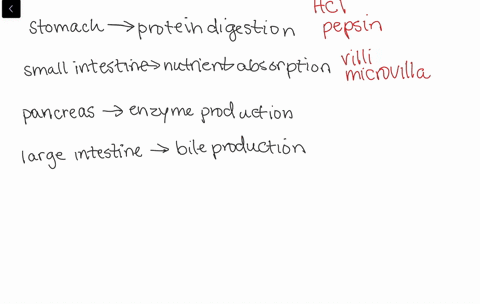 HCl
stomach → protein digestion pepsin
small intestine → nutrient absorption villi
microvilla
pancreas → enzyme production
large intestine → bile production